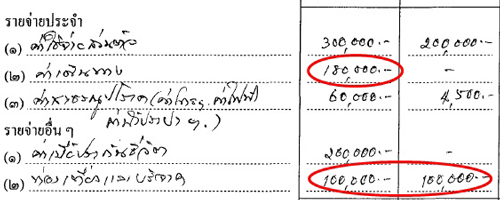 รายจ่ายประจำ
(๑) ค่าใช้จ่ายส่วนตัว 300,000.- 200,000.-
(๒) ค่าเดินทาง 180,000.- -
(๓) ค่าสาธารณูปโภค (ค่าโทรฯ, ค่าไฟฟ้า 60,000.- 4,500.-
ค่าน้ำประปา ฯ.)
รายจ่ายอื่น ๆ
(๑) ค่าเบี้ยประกันชีวิต 200,000.- -
(๒) ท่องเที่ยวและบริจาค 100,000.- 100,000.-